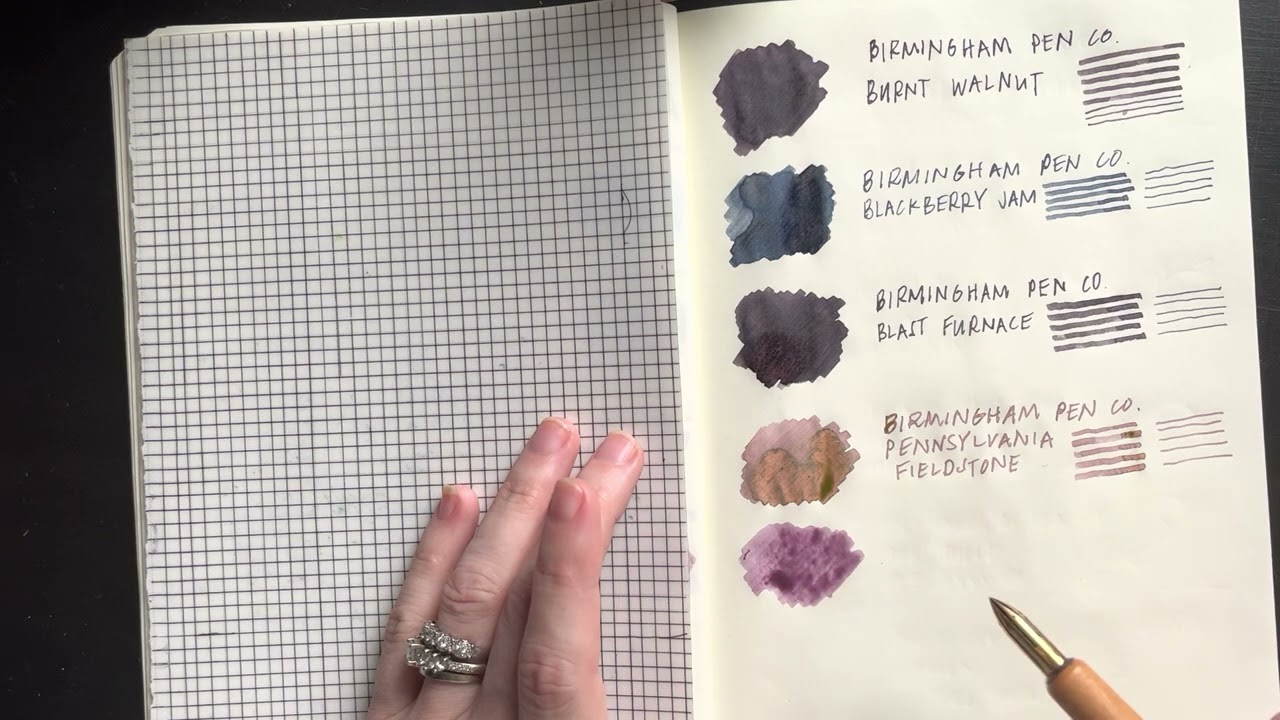 BIRMINGHAM PEN CO.
BURNT WALNUT
BIRMINGHAM PEN CO.
BLACKBERRY JAM
BIRMINGHAM PEN CO.
BLAST FURNACE
BIRMINGHAM PEN CO.
PENNSYLVANIA
FIELDSTONE